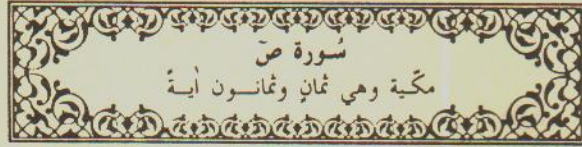 سُورة صٓ
مكّية وهي ثمانٍ وثمانــون اٰيـةً